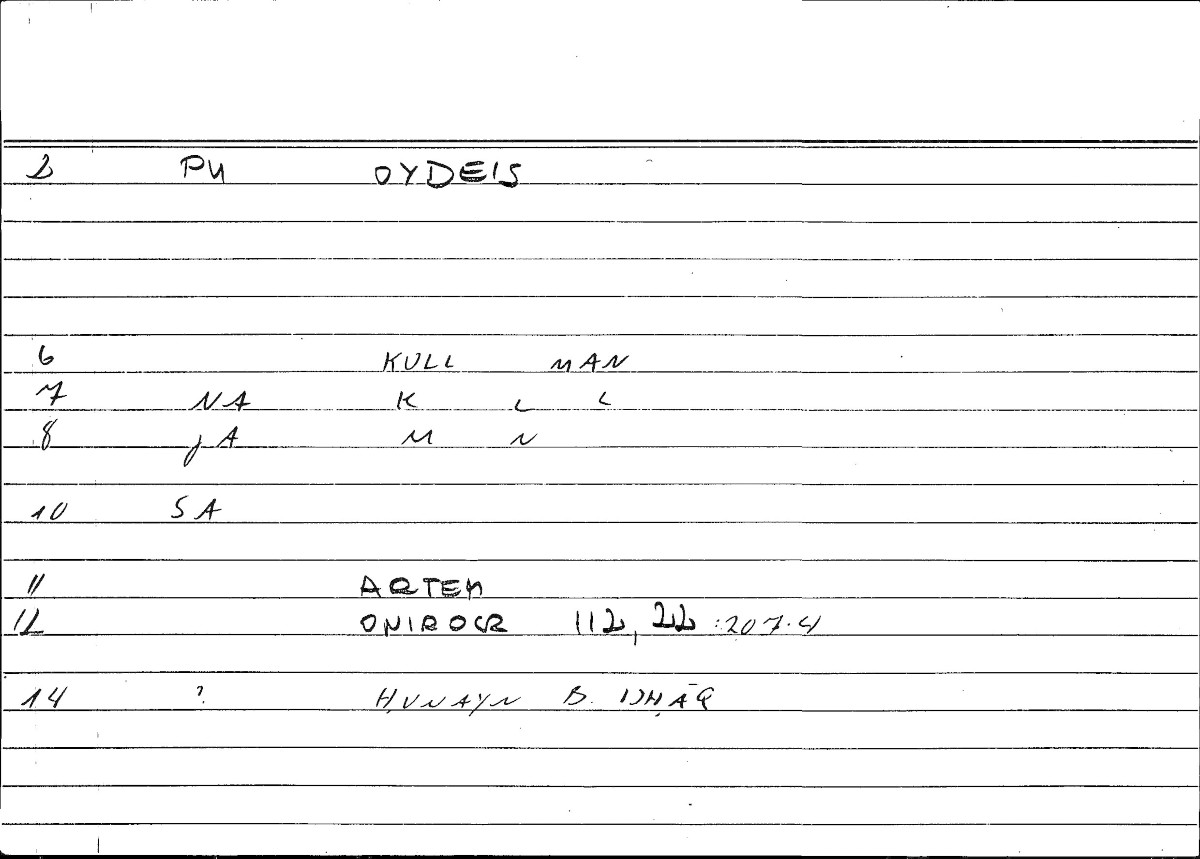 2 PU OYDEIS
6 KULL MAN
7 NA K L L
8 JA M N
10 SA
11 ARTEM
12 ONIROCR 112, 22 :207.4
14 ? ḤUNAYN B. ISḤĀQ